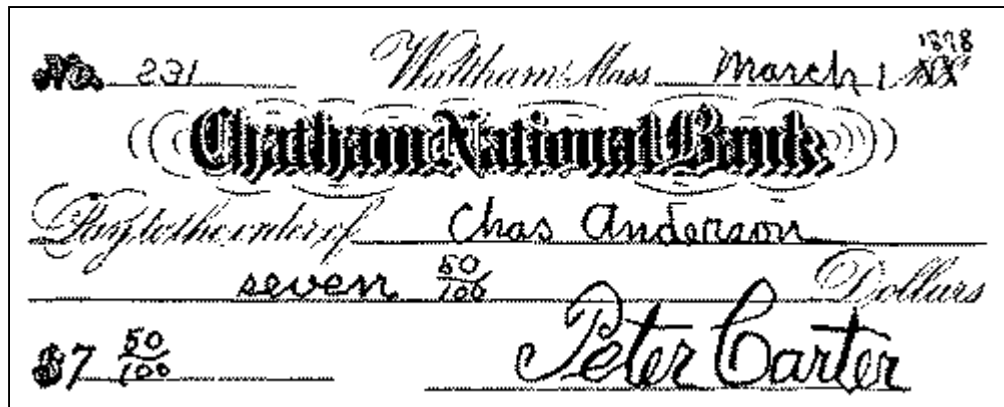 1878
No. 231 Waltham, Mass. March 1
Chatham National Bank
Pay to the order of Chas Anderson
seven 50/100 Dollars
$7 50/100 Peter Carter